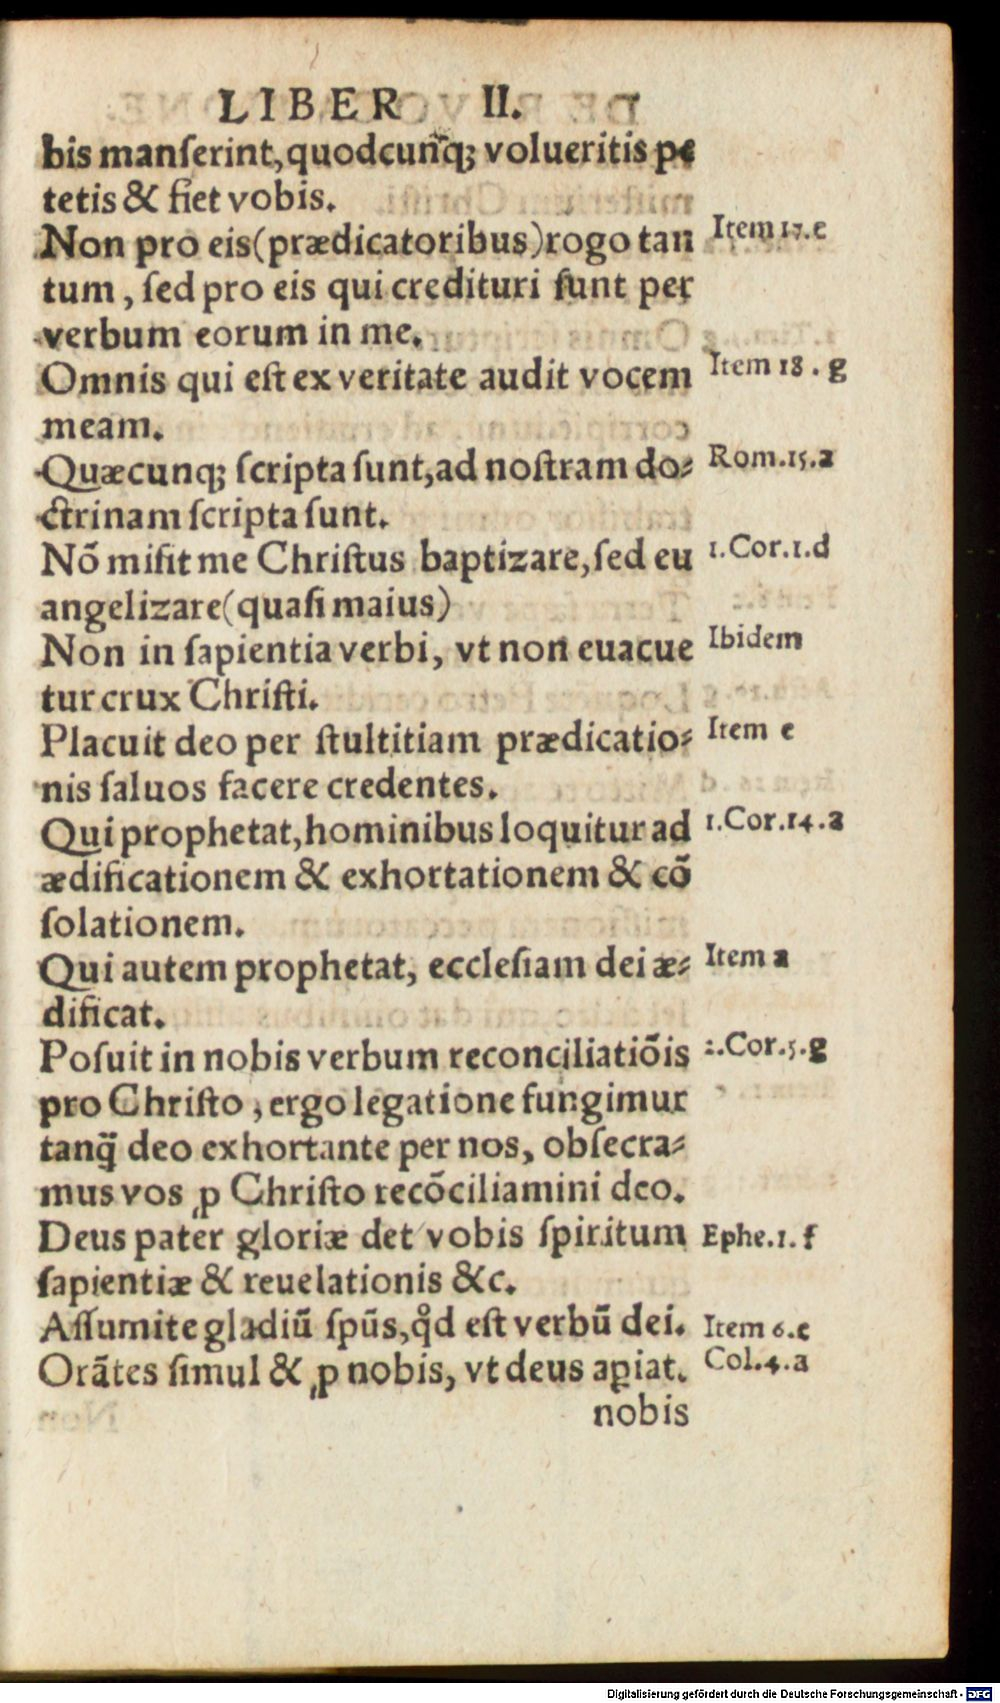 LIBER II.
bis manſerint, quodcun̄q; volueritis pe
tetis & fiet vobis.
Non pro eis (prædicatoribus) rogo tan
Item 17.e
tum, ſed pro eis qui credituri ſunt per
verbum eorum in me.
Omnis qui eſt ex veritate audit vocem
Item 18. g
meam.
Quæcunq; ſcripta ſunt, ad noſtram do⸗
Rom.15.a
ctrinam ſcripta ſunt.
Nõ miſit me Chriſtus baptizare, ſed eu
1.Cor.1.d
angelizare (quaſi maius)
Non in ſapientia verbi, vt non euacue
Ibidem
tur crux Chriſti.
Placuit deo per ſtultitiam prædicatio⸗
Item e
nis ſaluos facere credentes.
Qui prophetat, hominibus loquitur ad
1.Cor.14.a
ædificationem & exhortationem & cõ
ſolationem.
Qui autem prophetat, eccleſiam dei æ⸗
Item a
dificat.
Poſuit in nobis verbum reconciliatiõis
2.Cor.5.g
pro Chriſto, ergo legatione fungimur
tanq̃ deo exhortante per nos, obſecra⸗
mus vos ꝓ Chriſto recõciliamini deo.
Deus pater gloriæ det vobis ſpiritum
Ephe.1. f
ſapientiæ & reuelationis &c.
Aſſumite gladiũ ſpũs, qͦd eſt verbũ dei.
Item 6.c
Orãtes ſimul & ꝓ nobis, vt deus aꝑiat.
Col.4.a
nobis
Digitalisierung gefördert durch die Deutsche Forschungsgemeinschaft - DFG